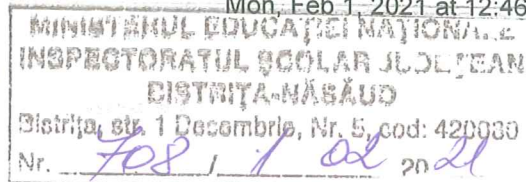 Mon, Feb 1, 2021 at 12:46
MINISTERUL EDUCAȚIEI NAȚIONALE
INSPECTORATUL ȘCOLAR JUDEȚEAN
BISTRIȚA-NĂSĂUD
Bistrița, str. 1 Decembrie, Nr. 5, cod: 420080
Nr. 708 / 1 02 20 21